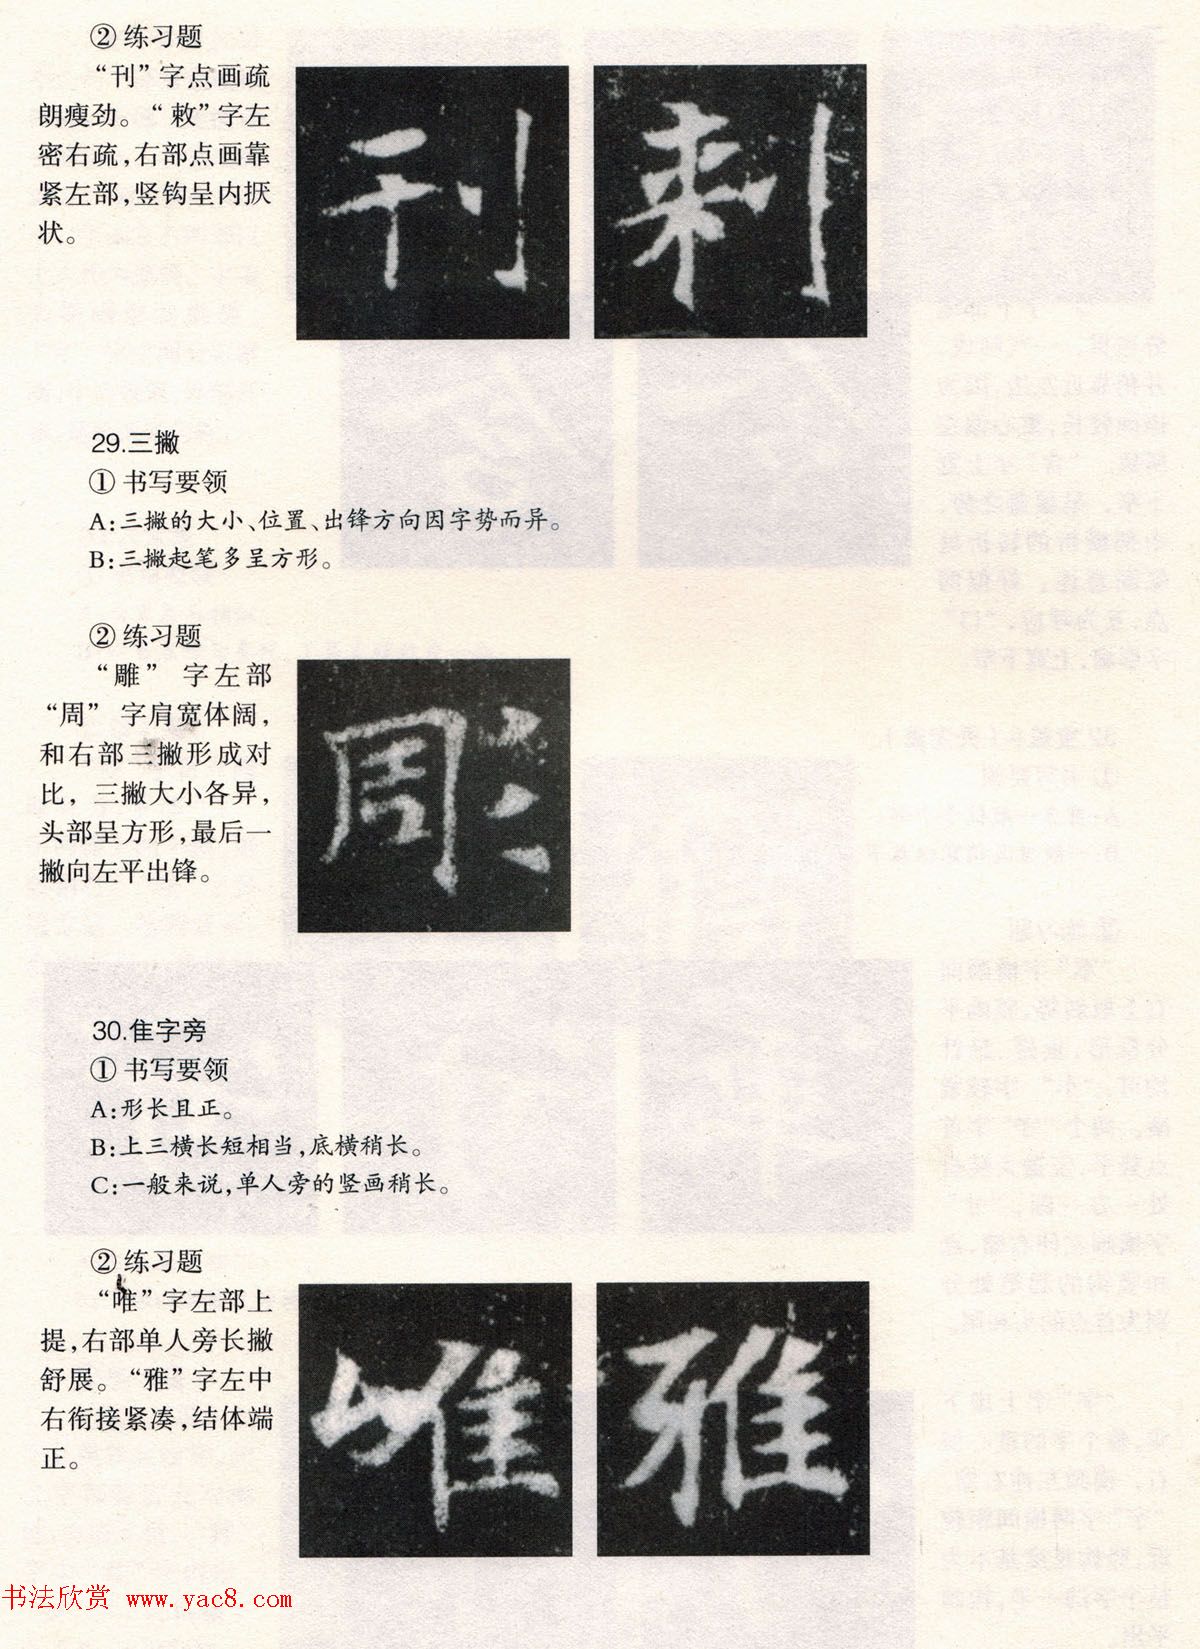 ②练习题
“刊”字点画疏
朗瘦劲。“敕”字左
密右疏,右部点画靠
紧左部,竖钩呈内
状。
刊 刺
29.三撇
①书写要领
A:三撇的大小、位置、出锋方向因字势而异。
B:三撇起笔多呈方形。
②练习题
“雕” 字左部
“周” 字肩宽体阔,
和右部三撇形成对
比, 三撇大小各异,
头部呈方形,最后一
撇向左平出锋。
彫
30.隹字旁
①书写要领
A:形长且正。
B:上三横长短相当,底横稍长。
C:一般来说,单人旁的竖画稍长。
②练习题
“唯”字左部上
提,右部单人旁长撇
舒展。“雅”字左中
右衔接紧凑,结体端
正。
唯 雅
书法欣赏 www.yac8.com